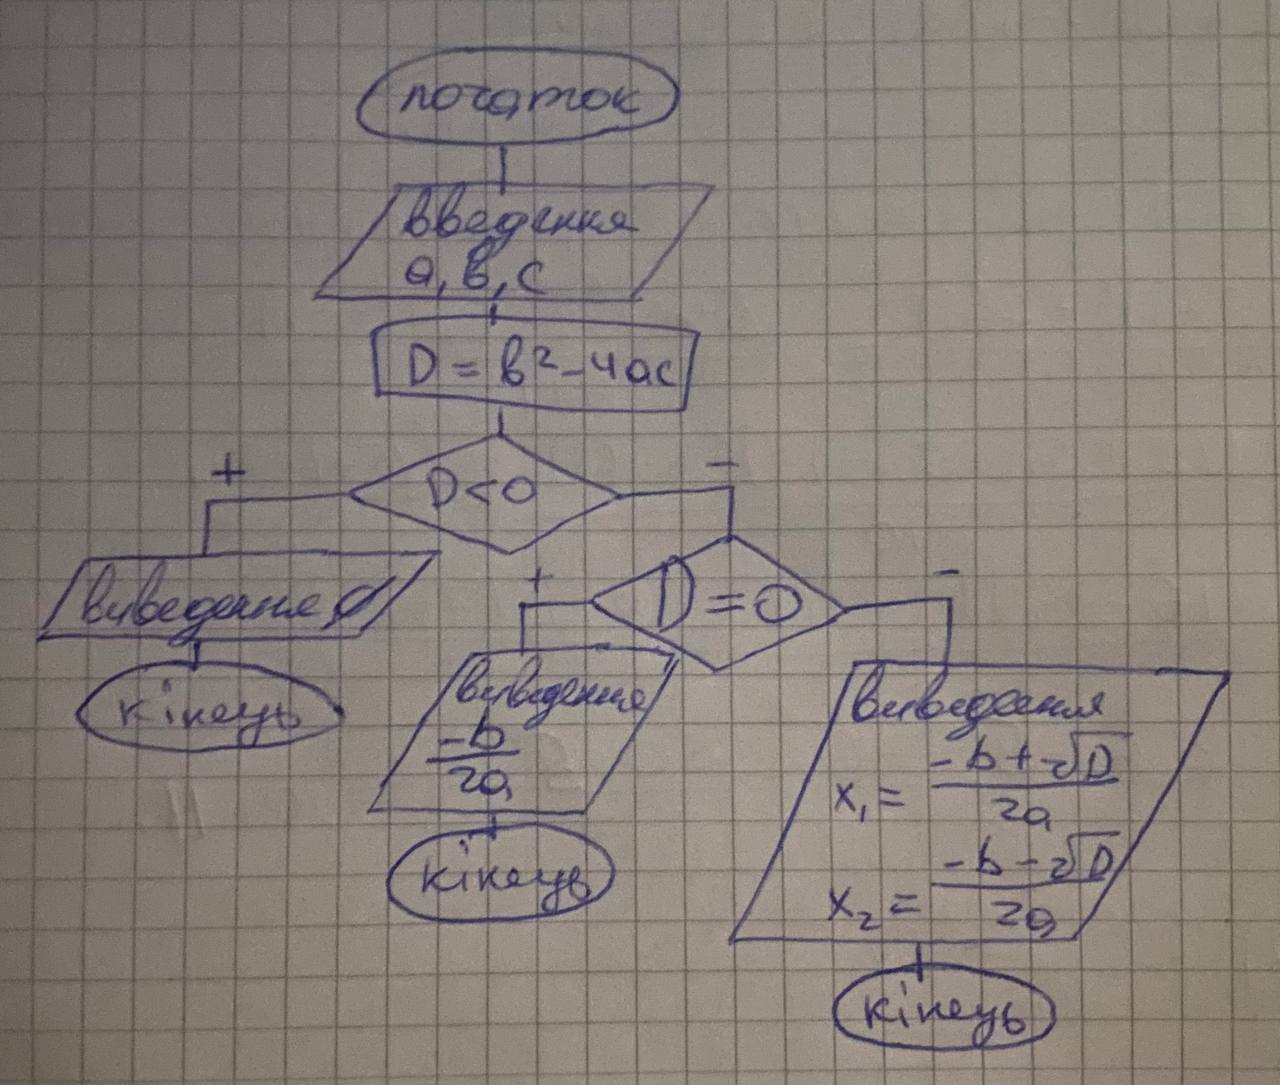 початок
введення
а, в, с
D = в² - 4ас
+
D < 0
-
виведення ∅
кінець
+
D = 0
-
виведення
-b
2a
кінець
виведення
x₁ = -b + √D
2a
x₂ = -b - √D
2a
кінець